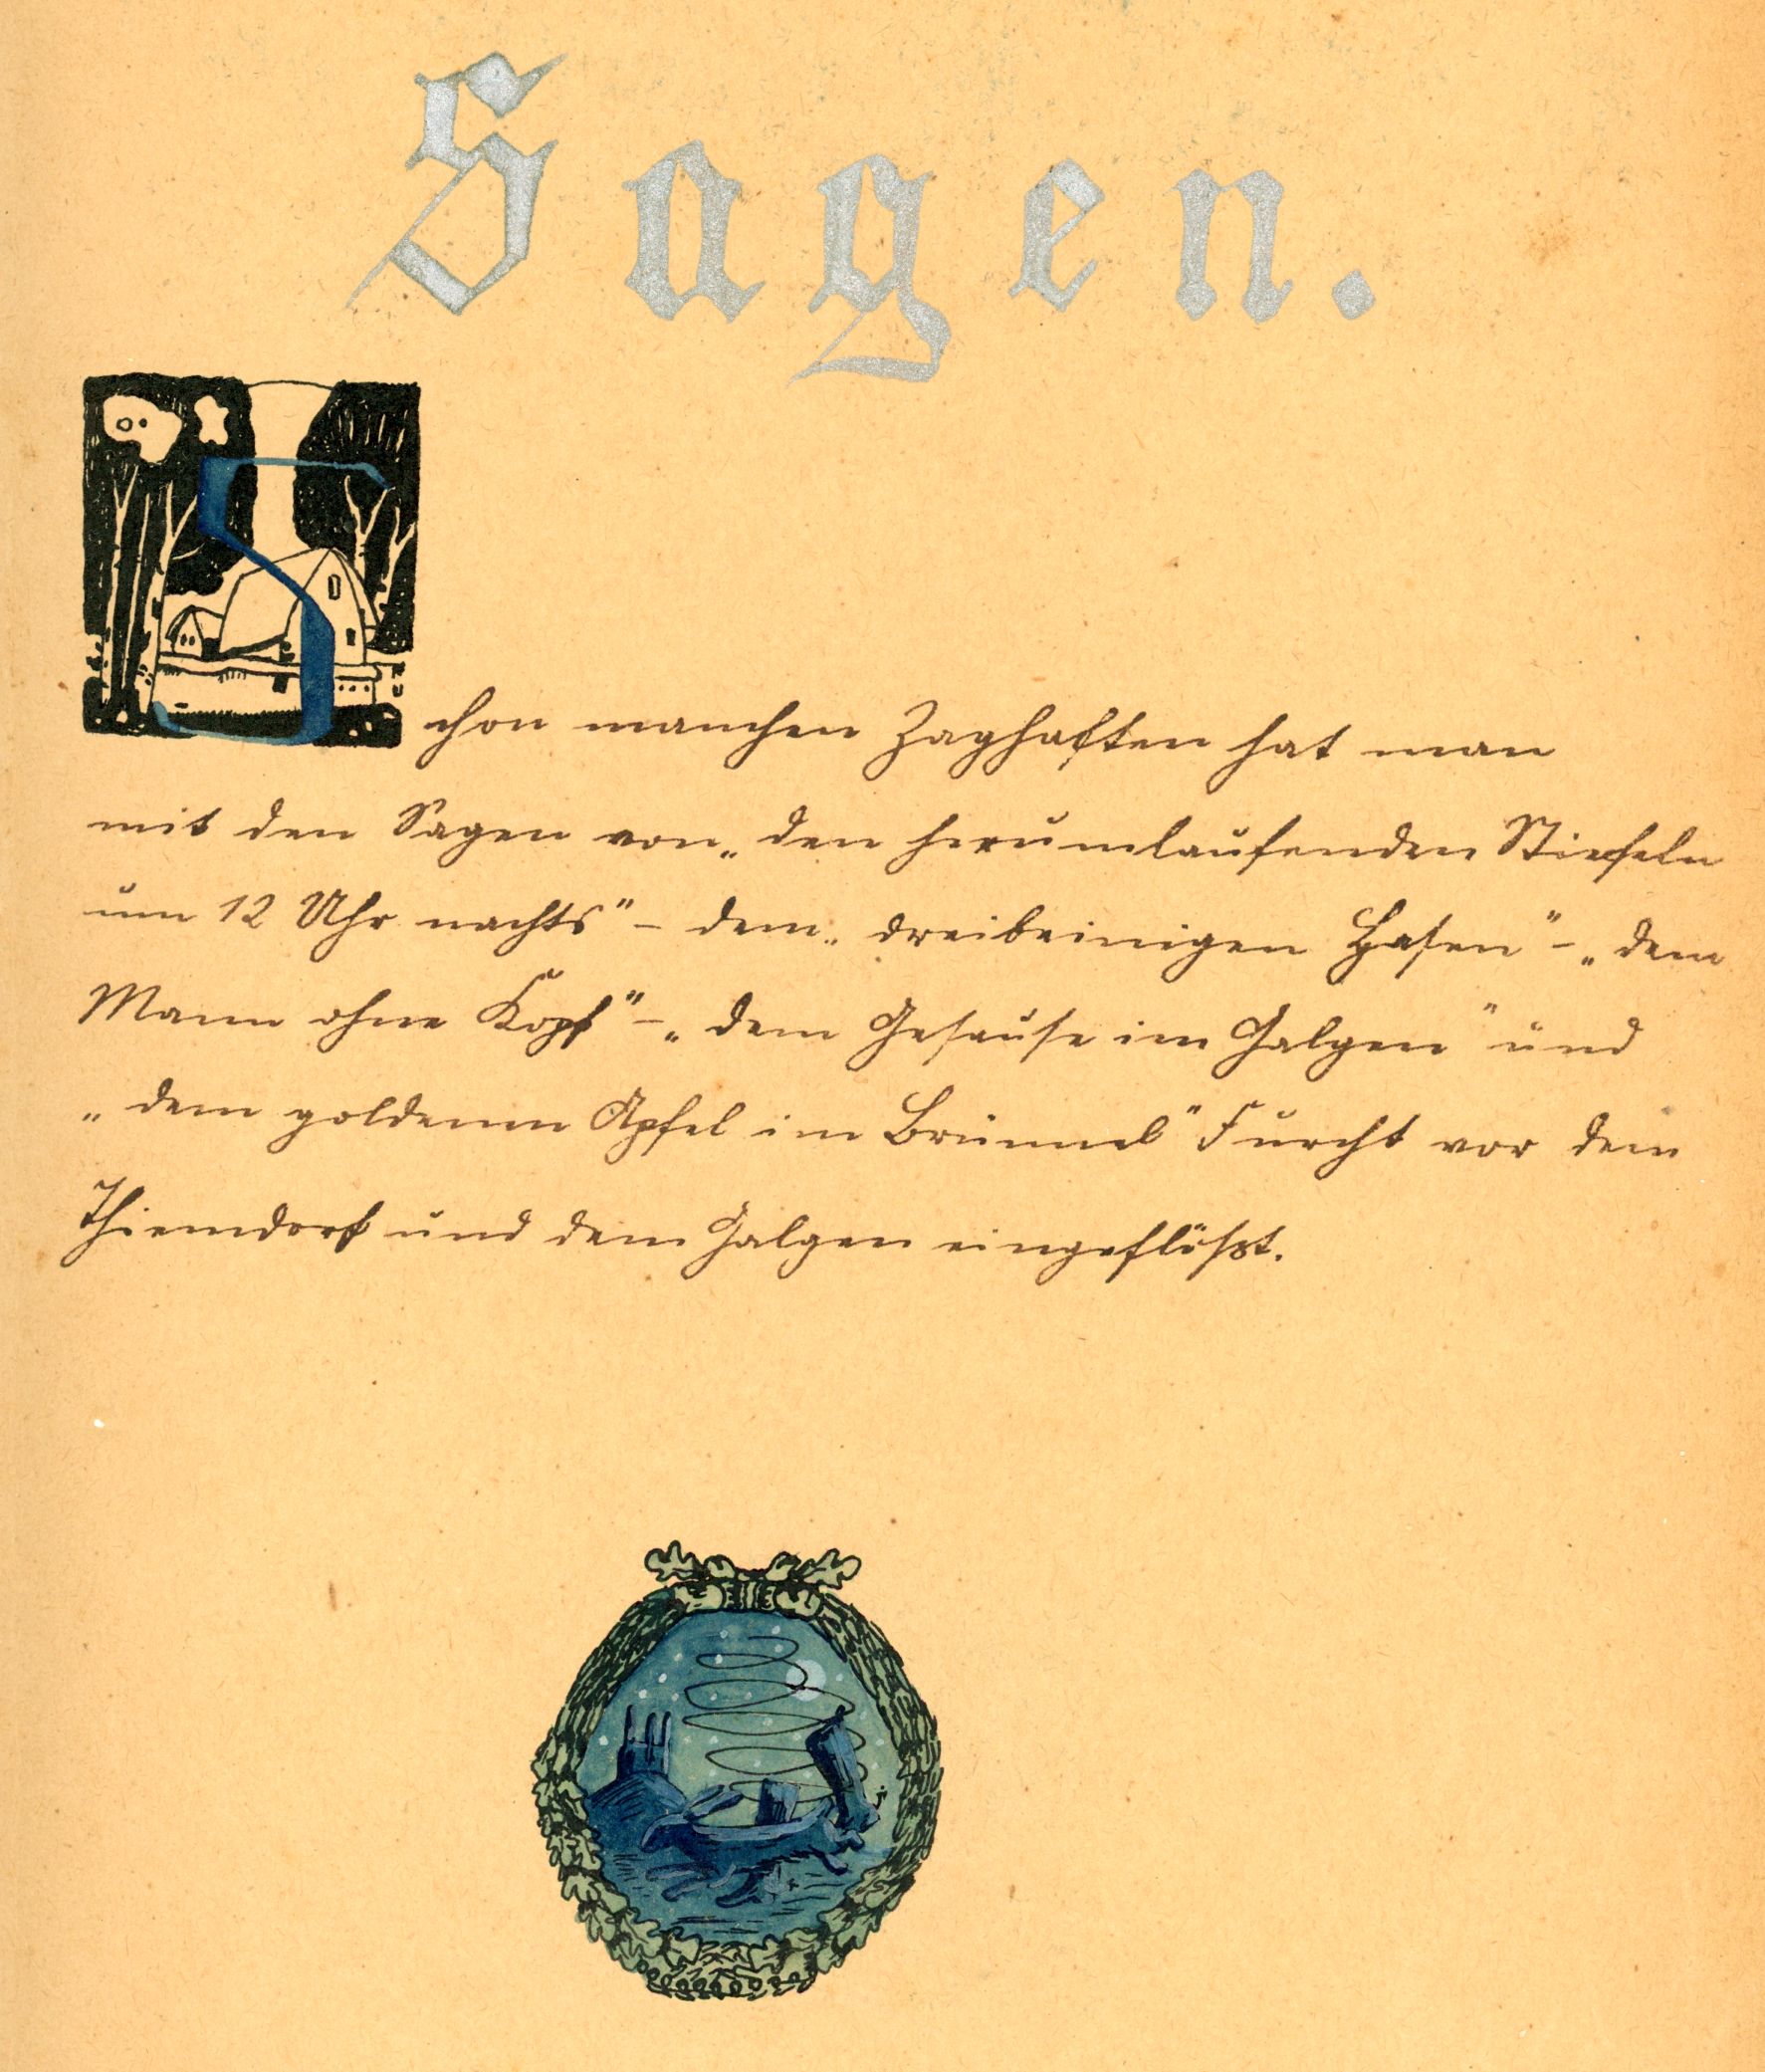 Sagen.
Schon manchen Zaghaften hat man
mit den Sagen von „den herumlaufenden Stiefeln
um 12 Uhr nachts" – dem „dreibeinigen Hasen" – „dem
Mann ohne Kopf" – „dem Gesause im Galgen" und
„dem goldenen Apfel im Brünnel" Furcht vor dem
Thiemdorf und dem Galgen eingeflößt.